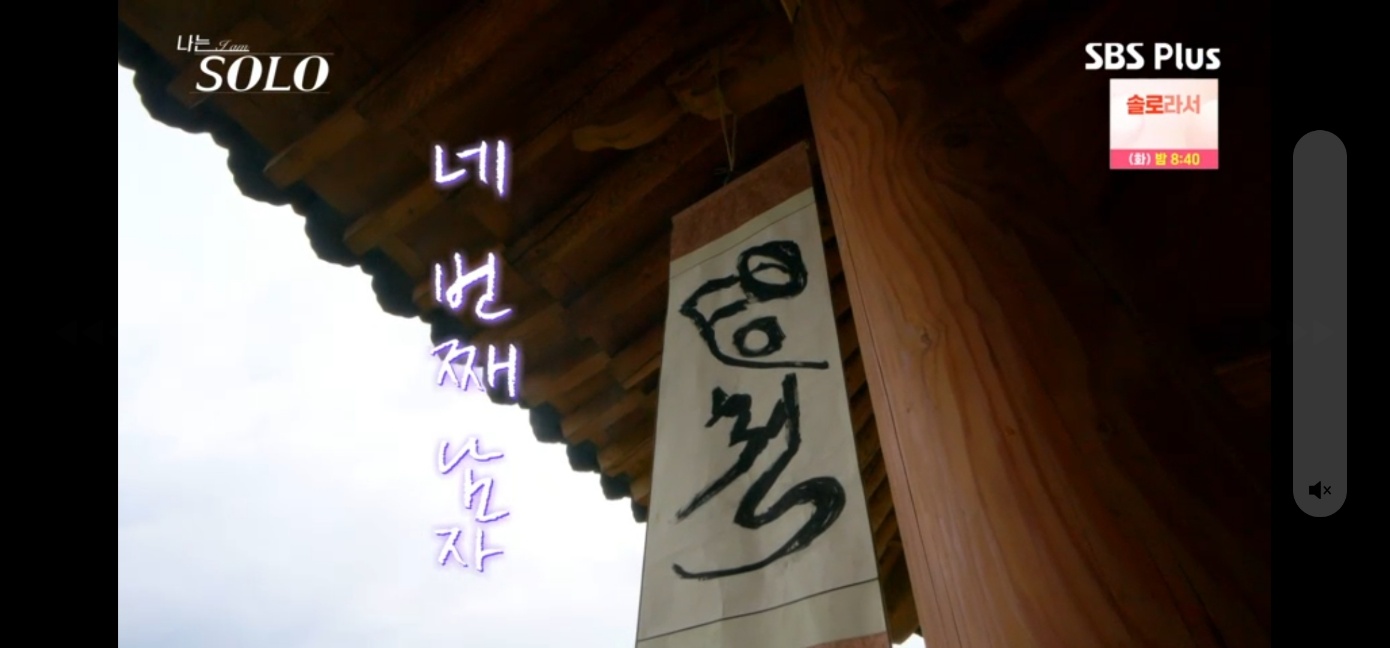 나는 I am
SOLO
SBS Plus
솔로라서
(화) 밤 8:40
네 번째 남자